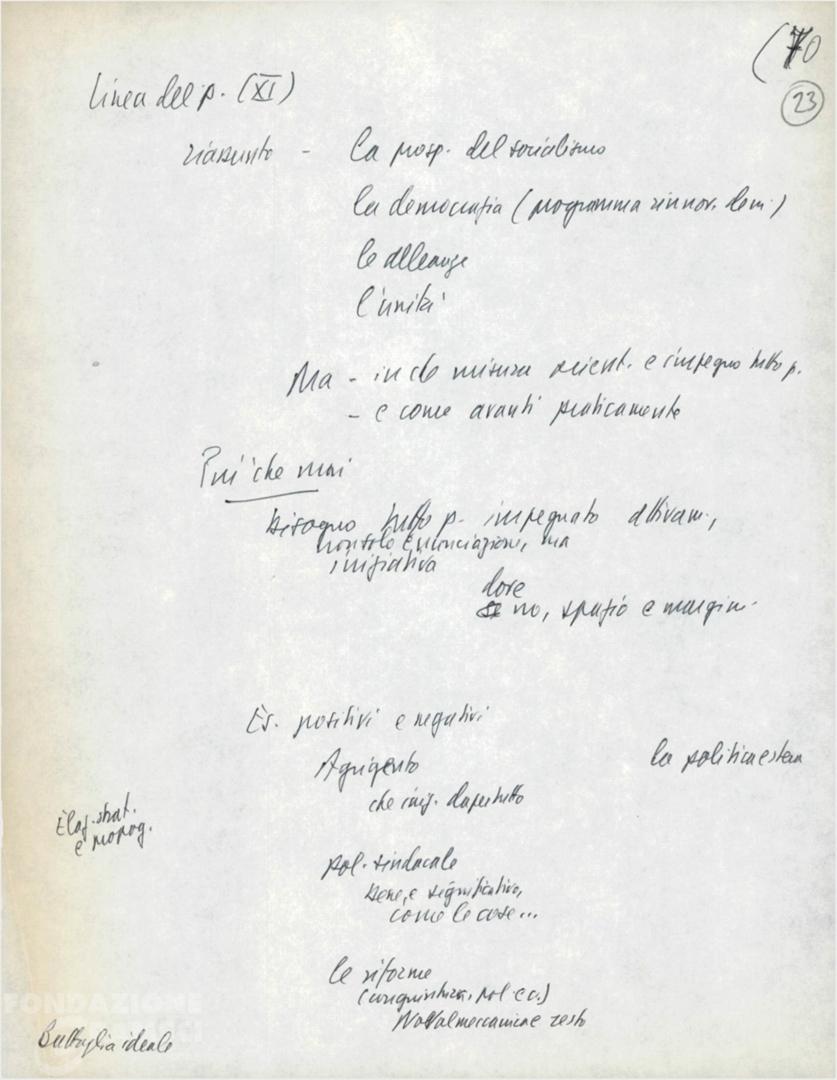 (70
23
Linea del p. (XI)
riassunto - La prosp. del socialismo
la democrazia (programma rinnov. dem.)
le alleanze
l'unità
Ma - in che misura orient. e impegno tutto p.
- e come avanti praticamente
Più che mai
bisogno tutto p. impegnato attivam.,
non solo enunciazioni, ma
iniziativa
dove
se no, spazio e margini
Es. positivi e negativi
Agrigento
la politica estera
che iniz. dapertutto
Elab. strat.
e propag.
pol. sindacale
bene, e significativo,
come le cose...
le riforme
(congiuntura, pol. ec.)
resto
FONDAZIONE
Battaglia ideale